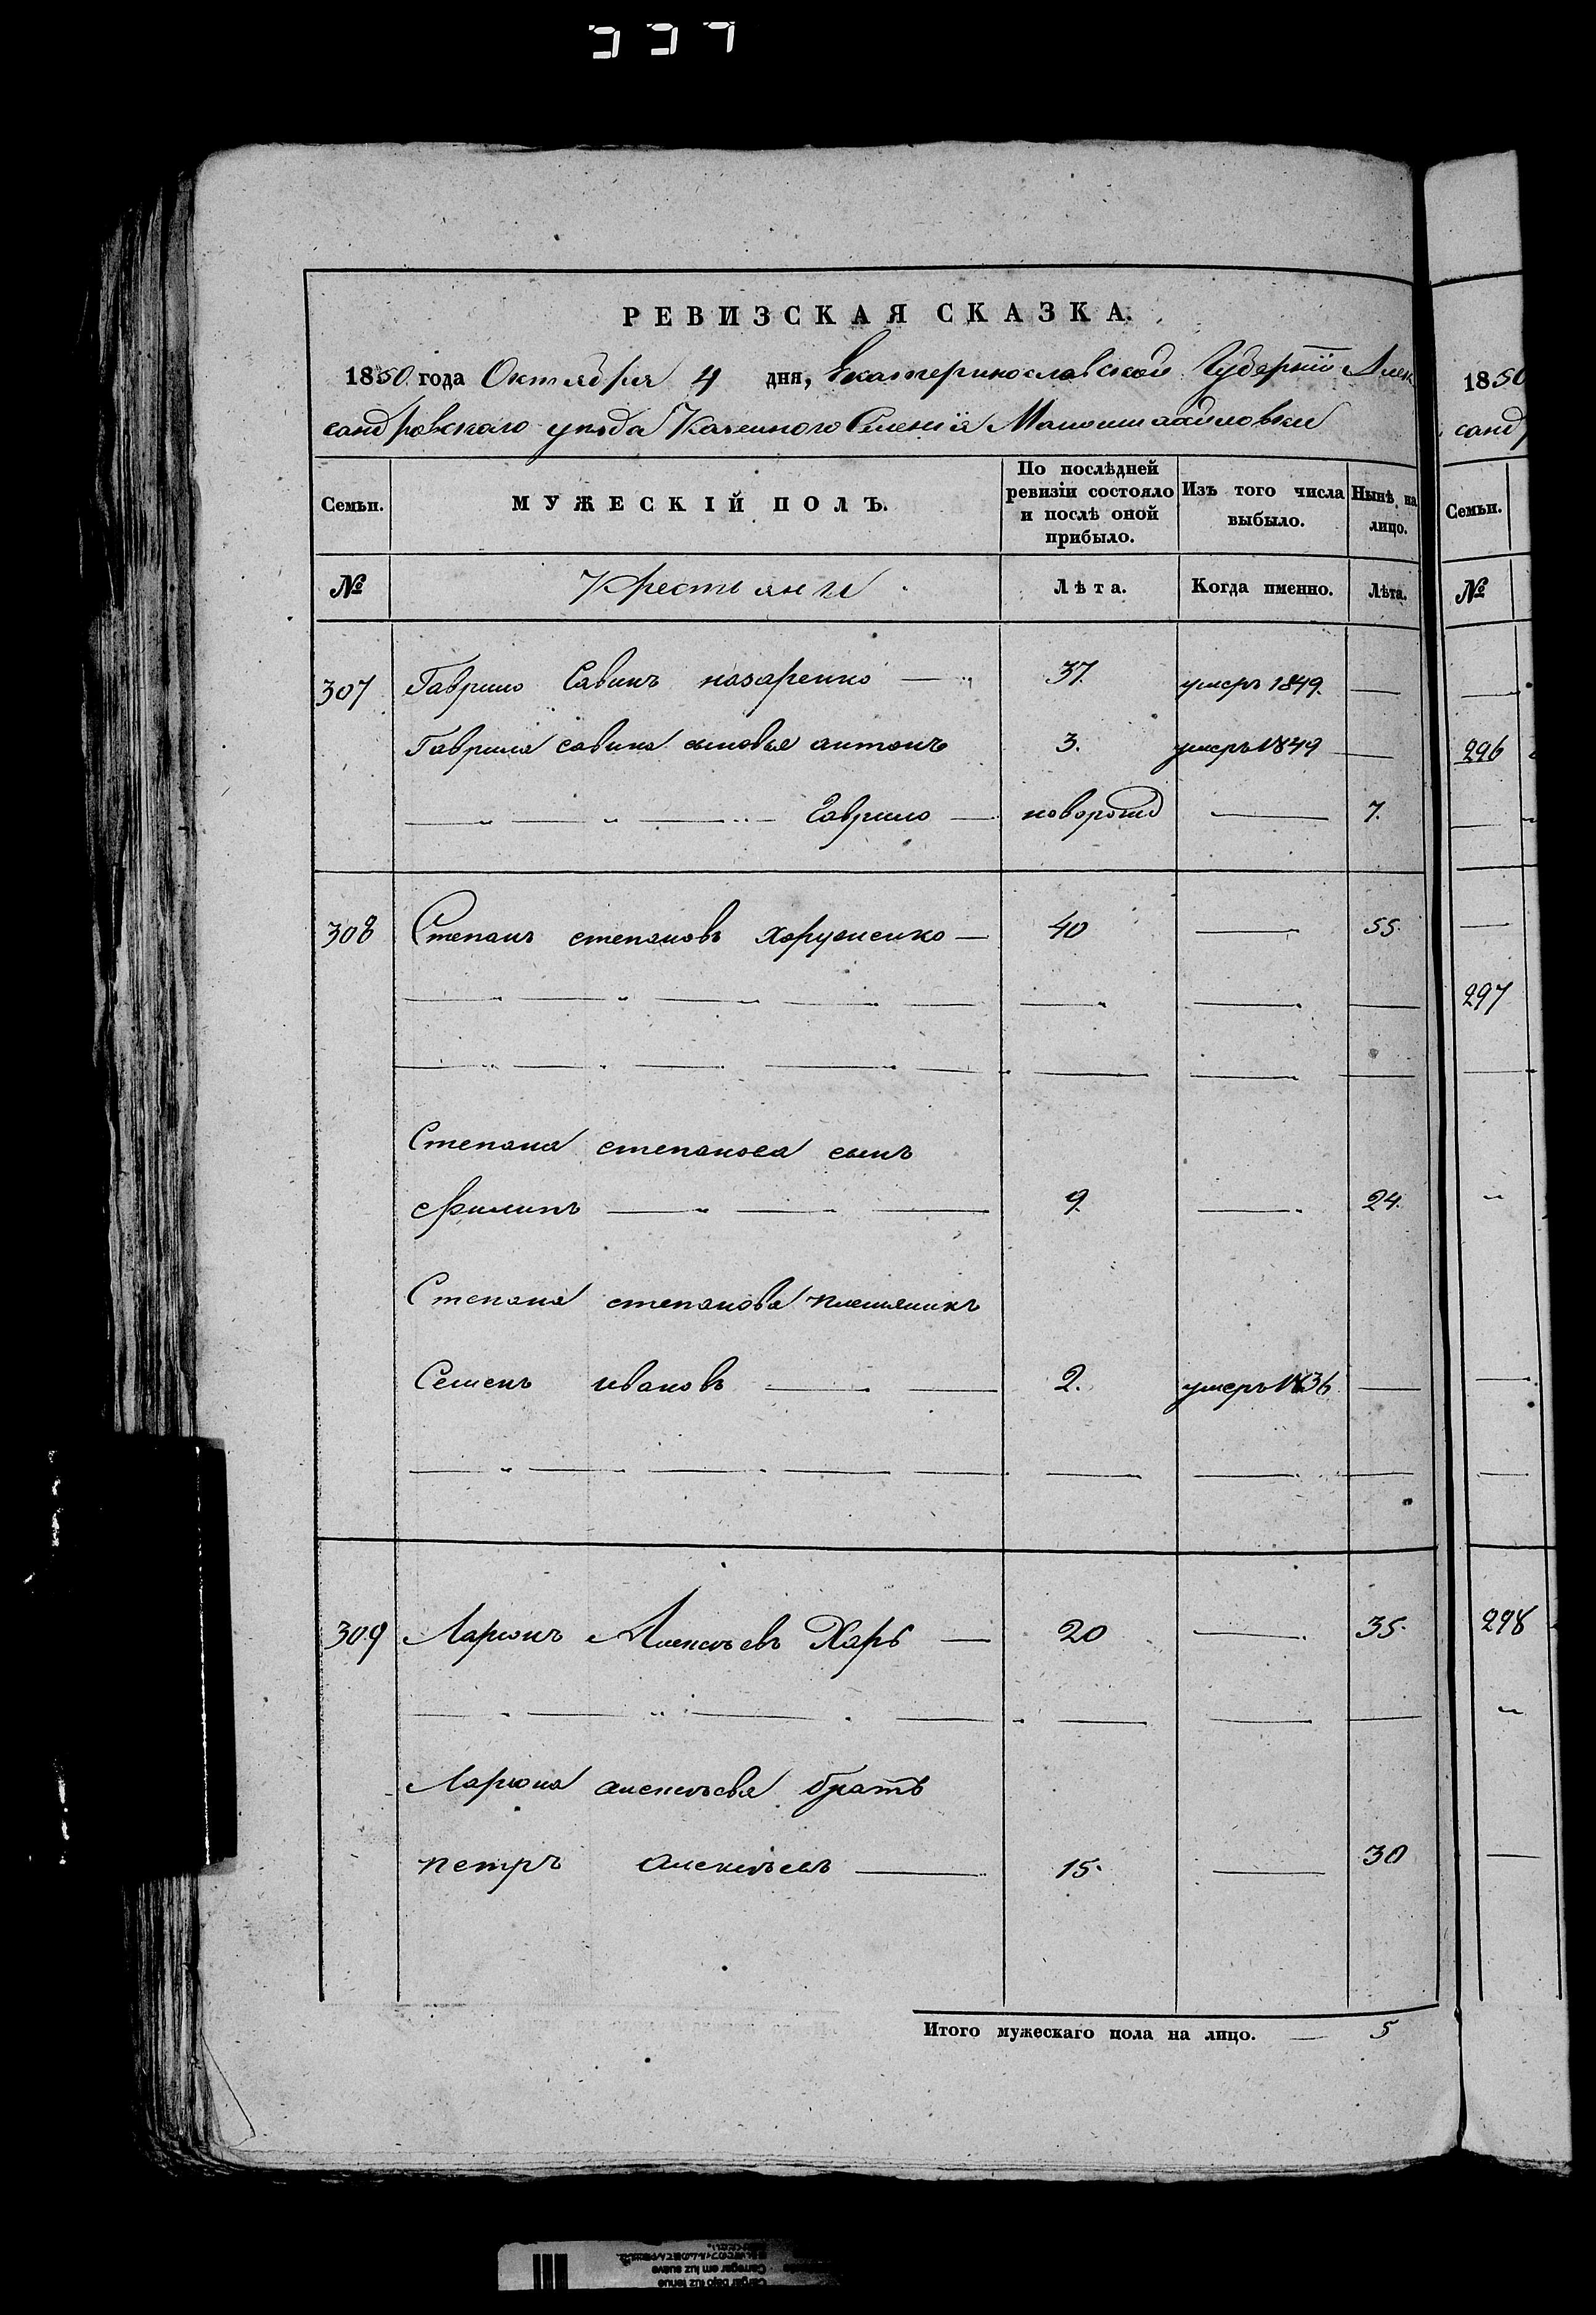 РЕВИЗСКАЯ СКАЗКА.
1850 года Октября 4 дня, Екатеринославской Губерніи Алек
сандровскаго уезда Казенного Селенія Мапошиайловки
Семьи. МУЖЕСКІЙ ПОЛЪ. По послѣдней ревизіи состояло и послѣ оной прибыло. Изъ того числа выбыло. Нынѣ на лицо.
№ Крестьяне Лѣта. Когда именно. Лѣта.
307 Гаврило Савинъ назаренко — 37. умеръ 1849. —
Гаврила савина сыновья антонъ 3. умеръ 1849 —
Гаврило — новорожд — 7.
308 Степанъ степановъ Харченко — 40 — 55.
Степана степанова сынъ
Филипъ — 9. — 24.
Степана степанова племяникъ
Семенъ ивановъ — 2. умеръ 1836 —
309 Ларионъ Алексѣевъ Харь — 20 — 35.
Лариона алексѣева братъ
петръ алексѣевъ — 15. — 30
Итого мужескаго пола на лицо. — 5
1850
санд
Семьи.
№
296
297
298